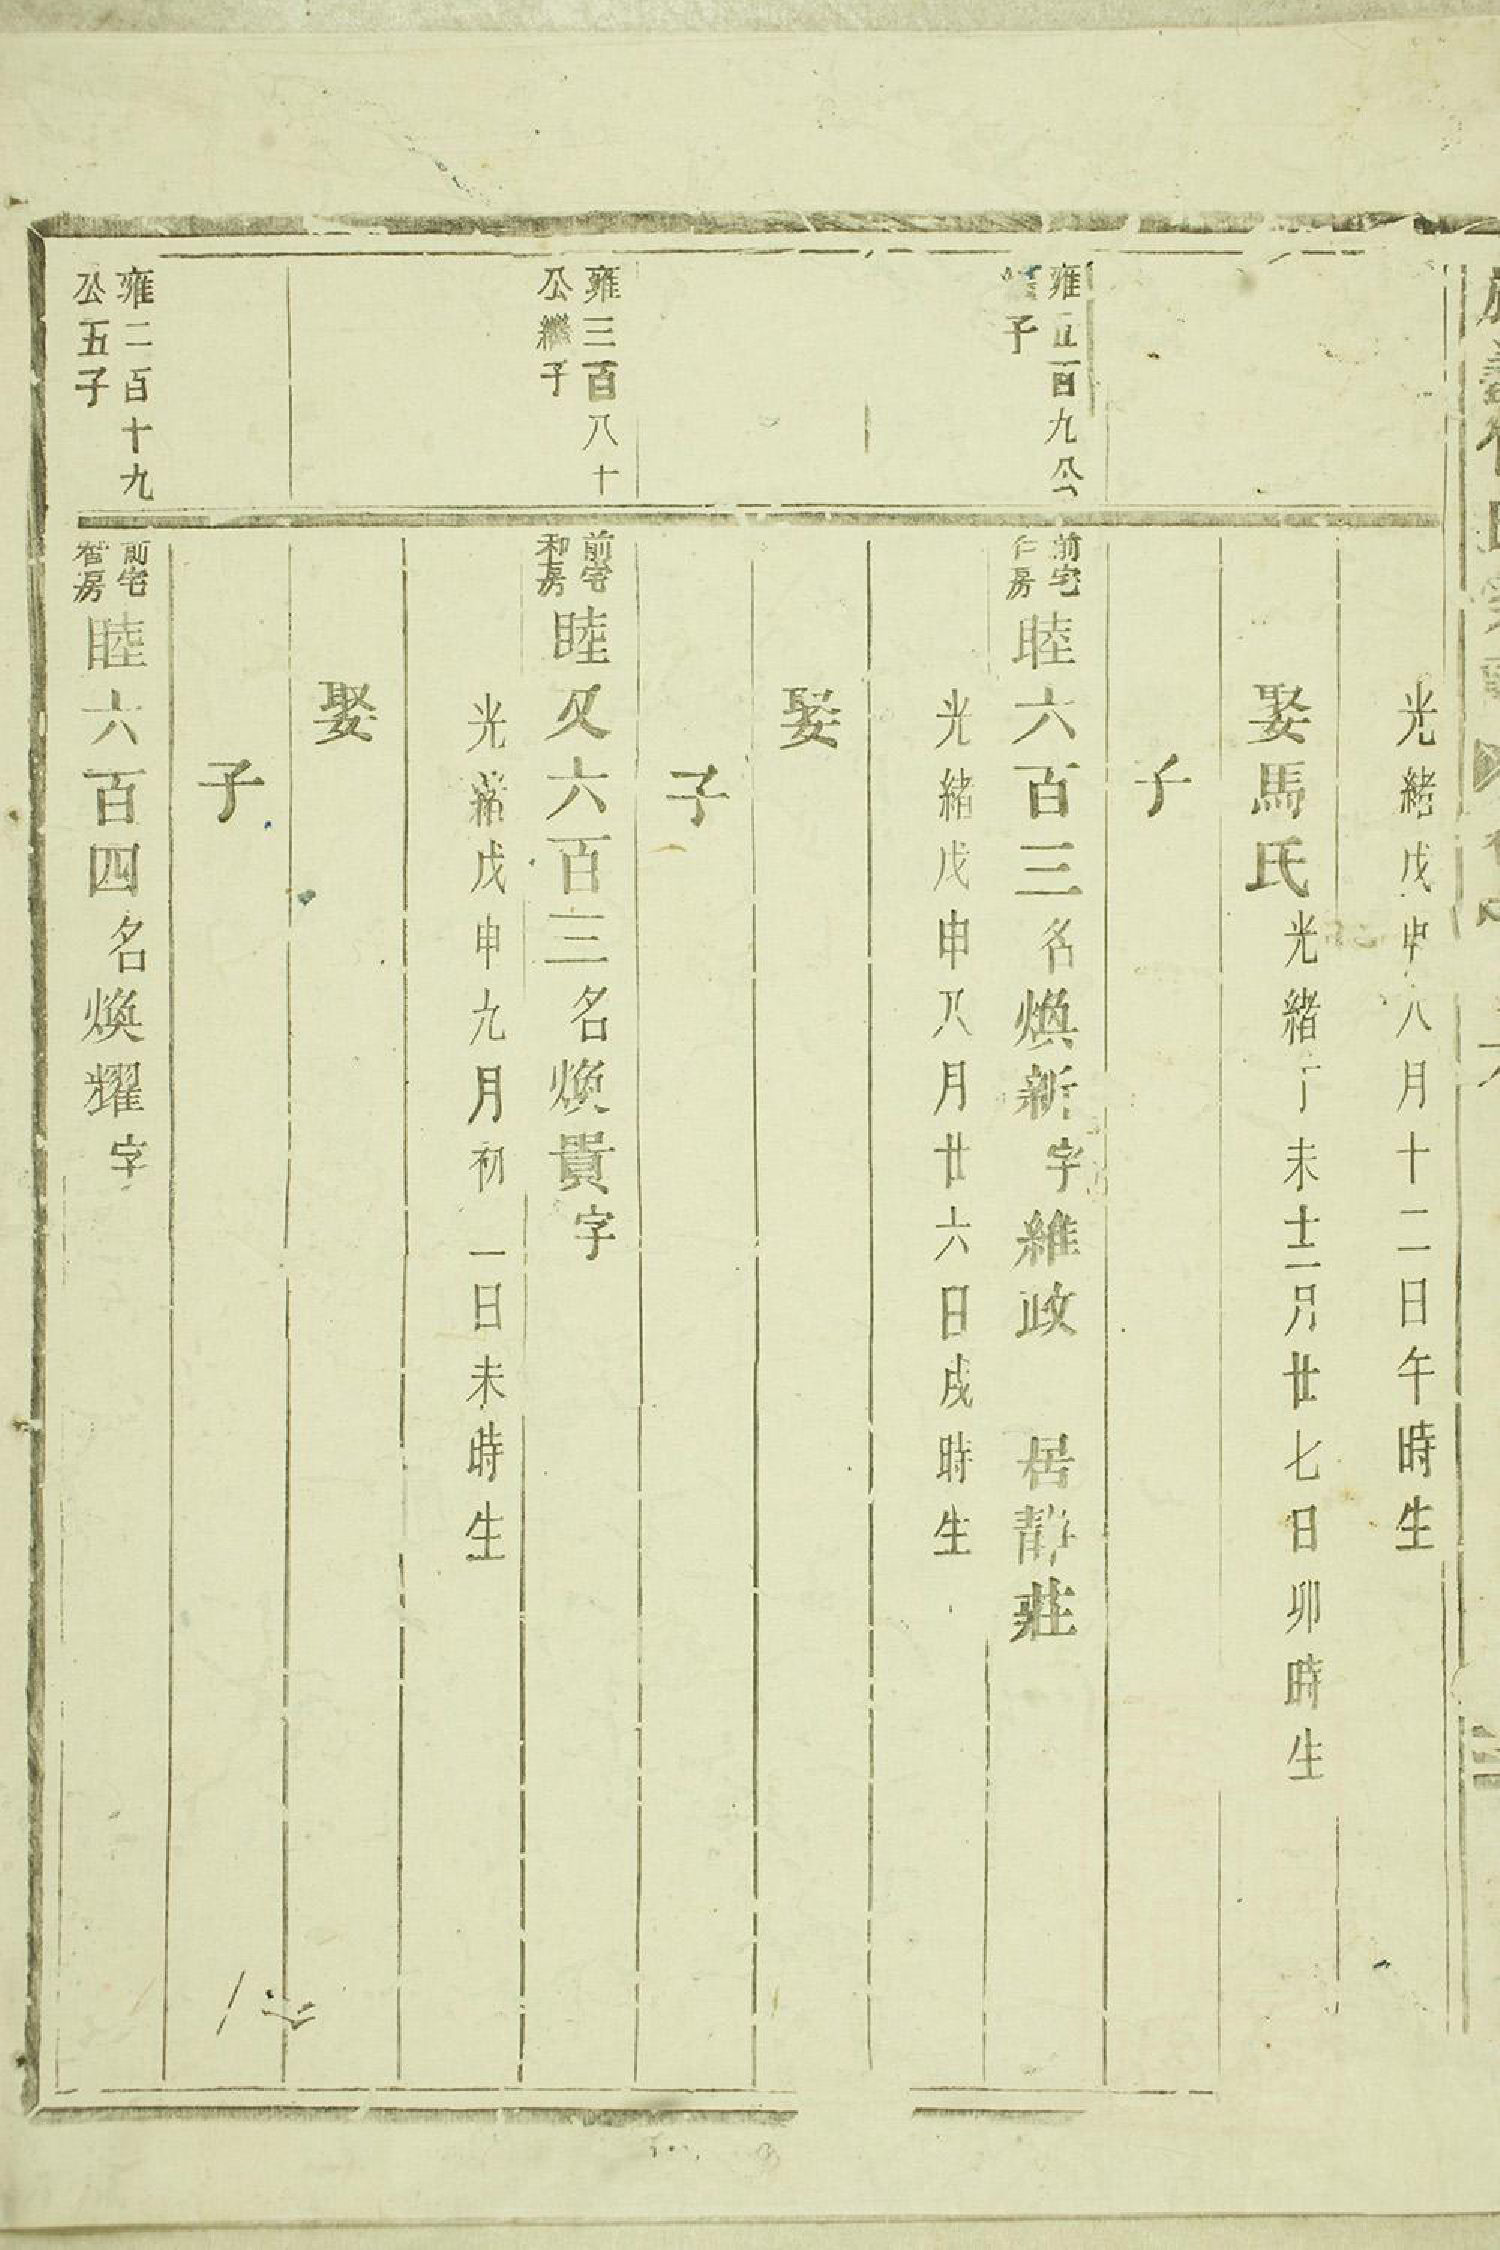 光緒戊申八月十二日午時生
娶馬氏光緒丁未十二月廿七日卯時生
子
雍五百九公
子
前宅
仁房
睦六百三名煥新字維政 居靜莊
光緒戊申八月廿六日戌時生
娶
子
雍三百八十
公繼子
前宅
和房
睦又六百三名煥貴字
光緒戊申九月初一日未時生
娶
子
雍二百十九
公五子
前宅
智房
睦六百四名煥耀字